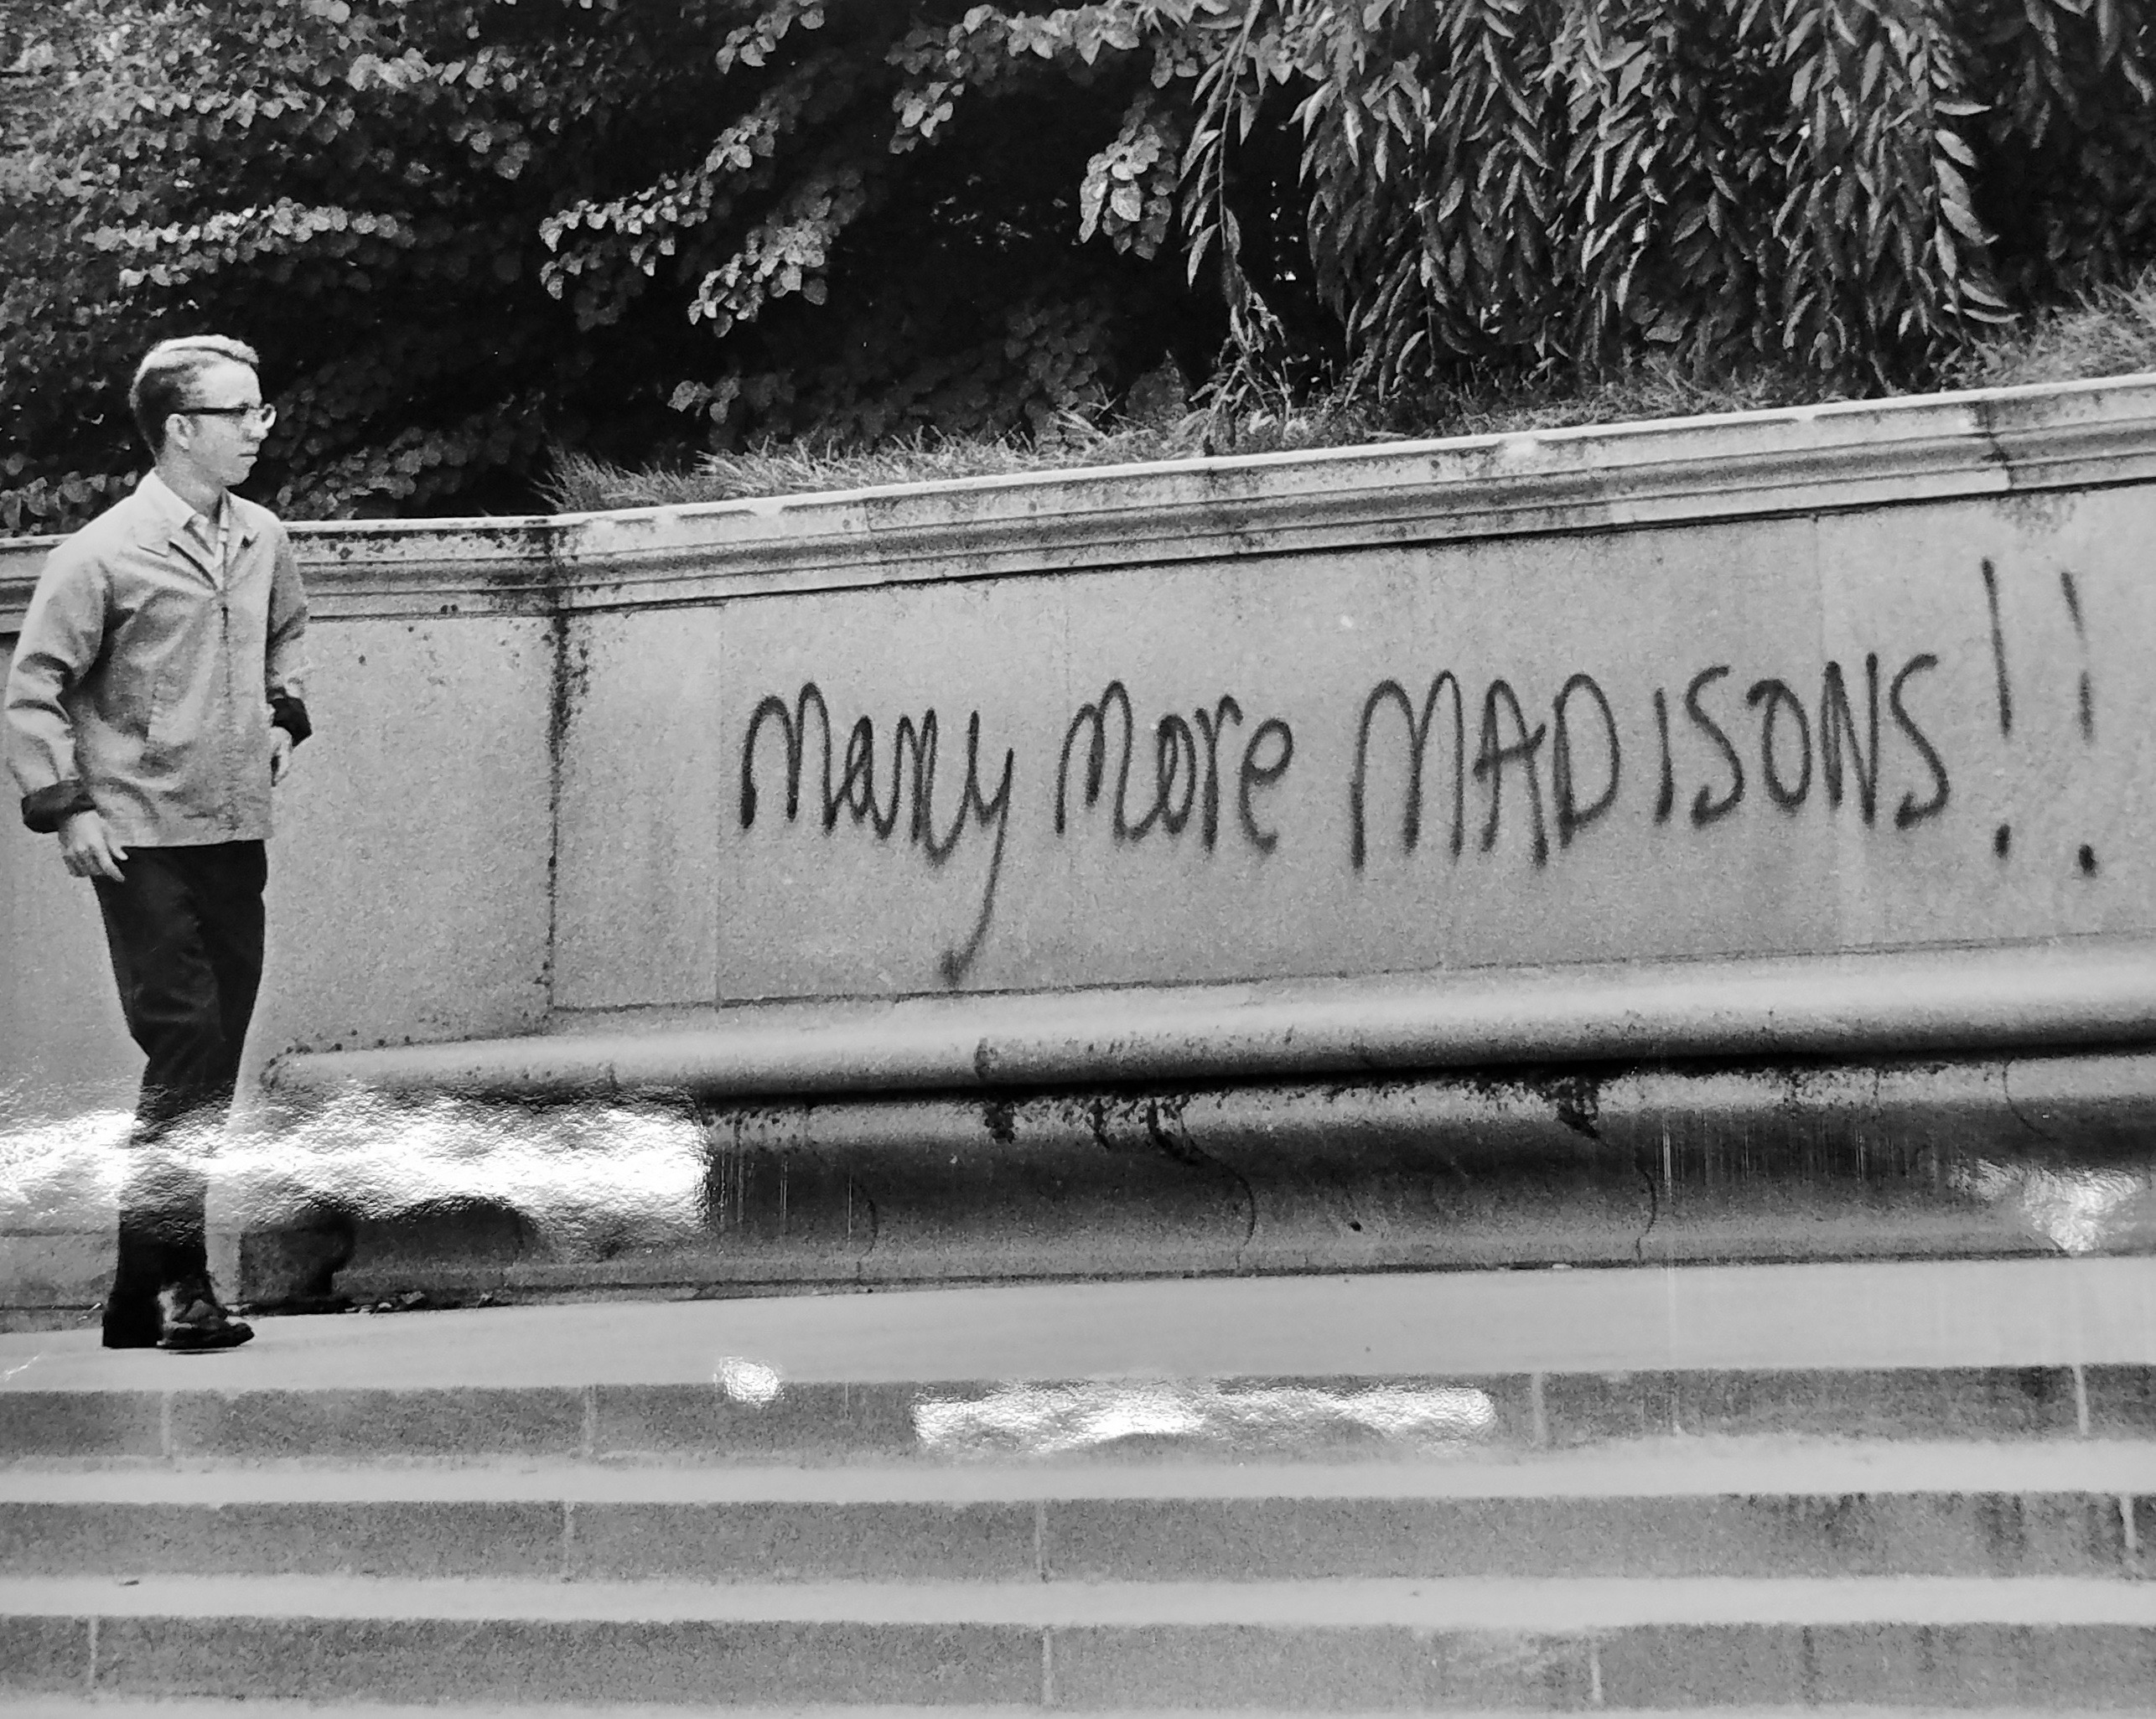 Many More MADISONS!!